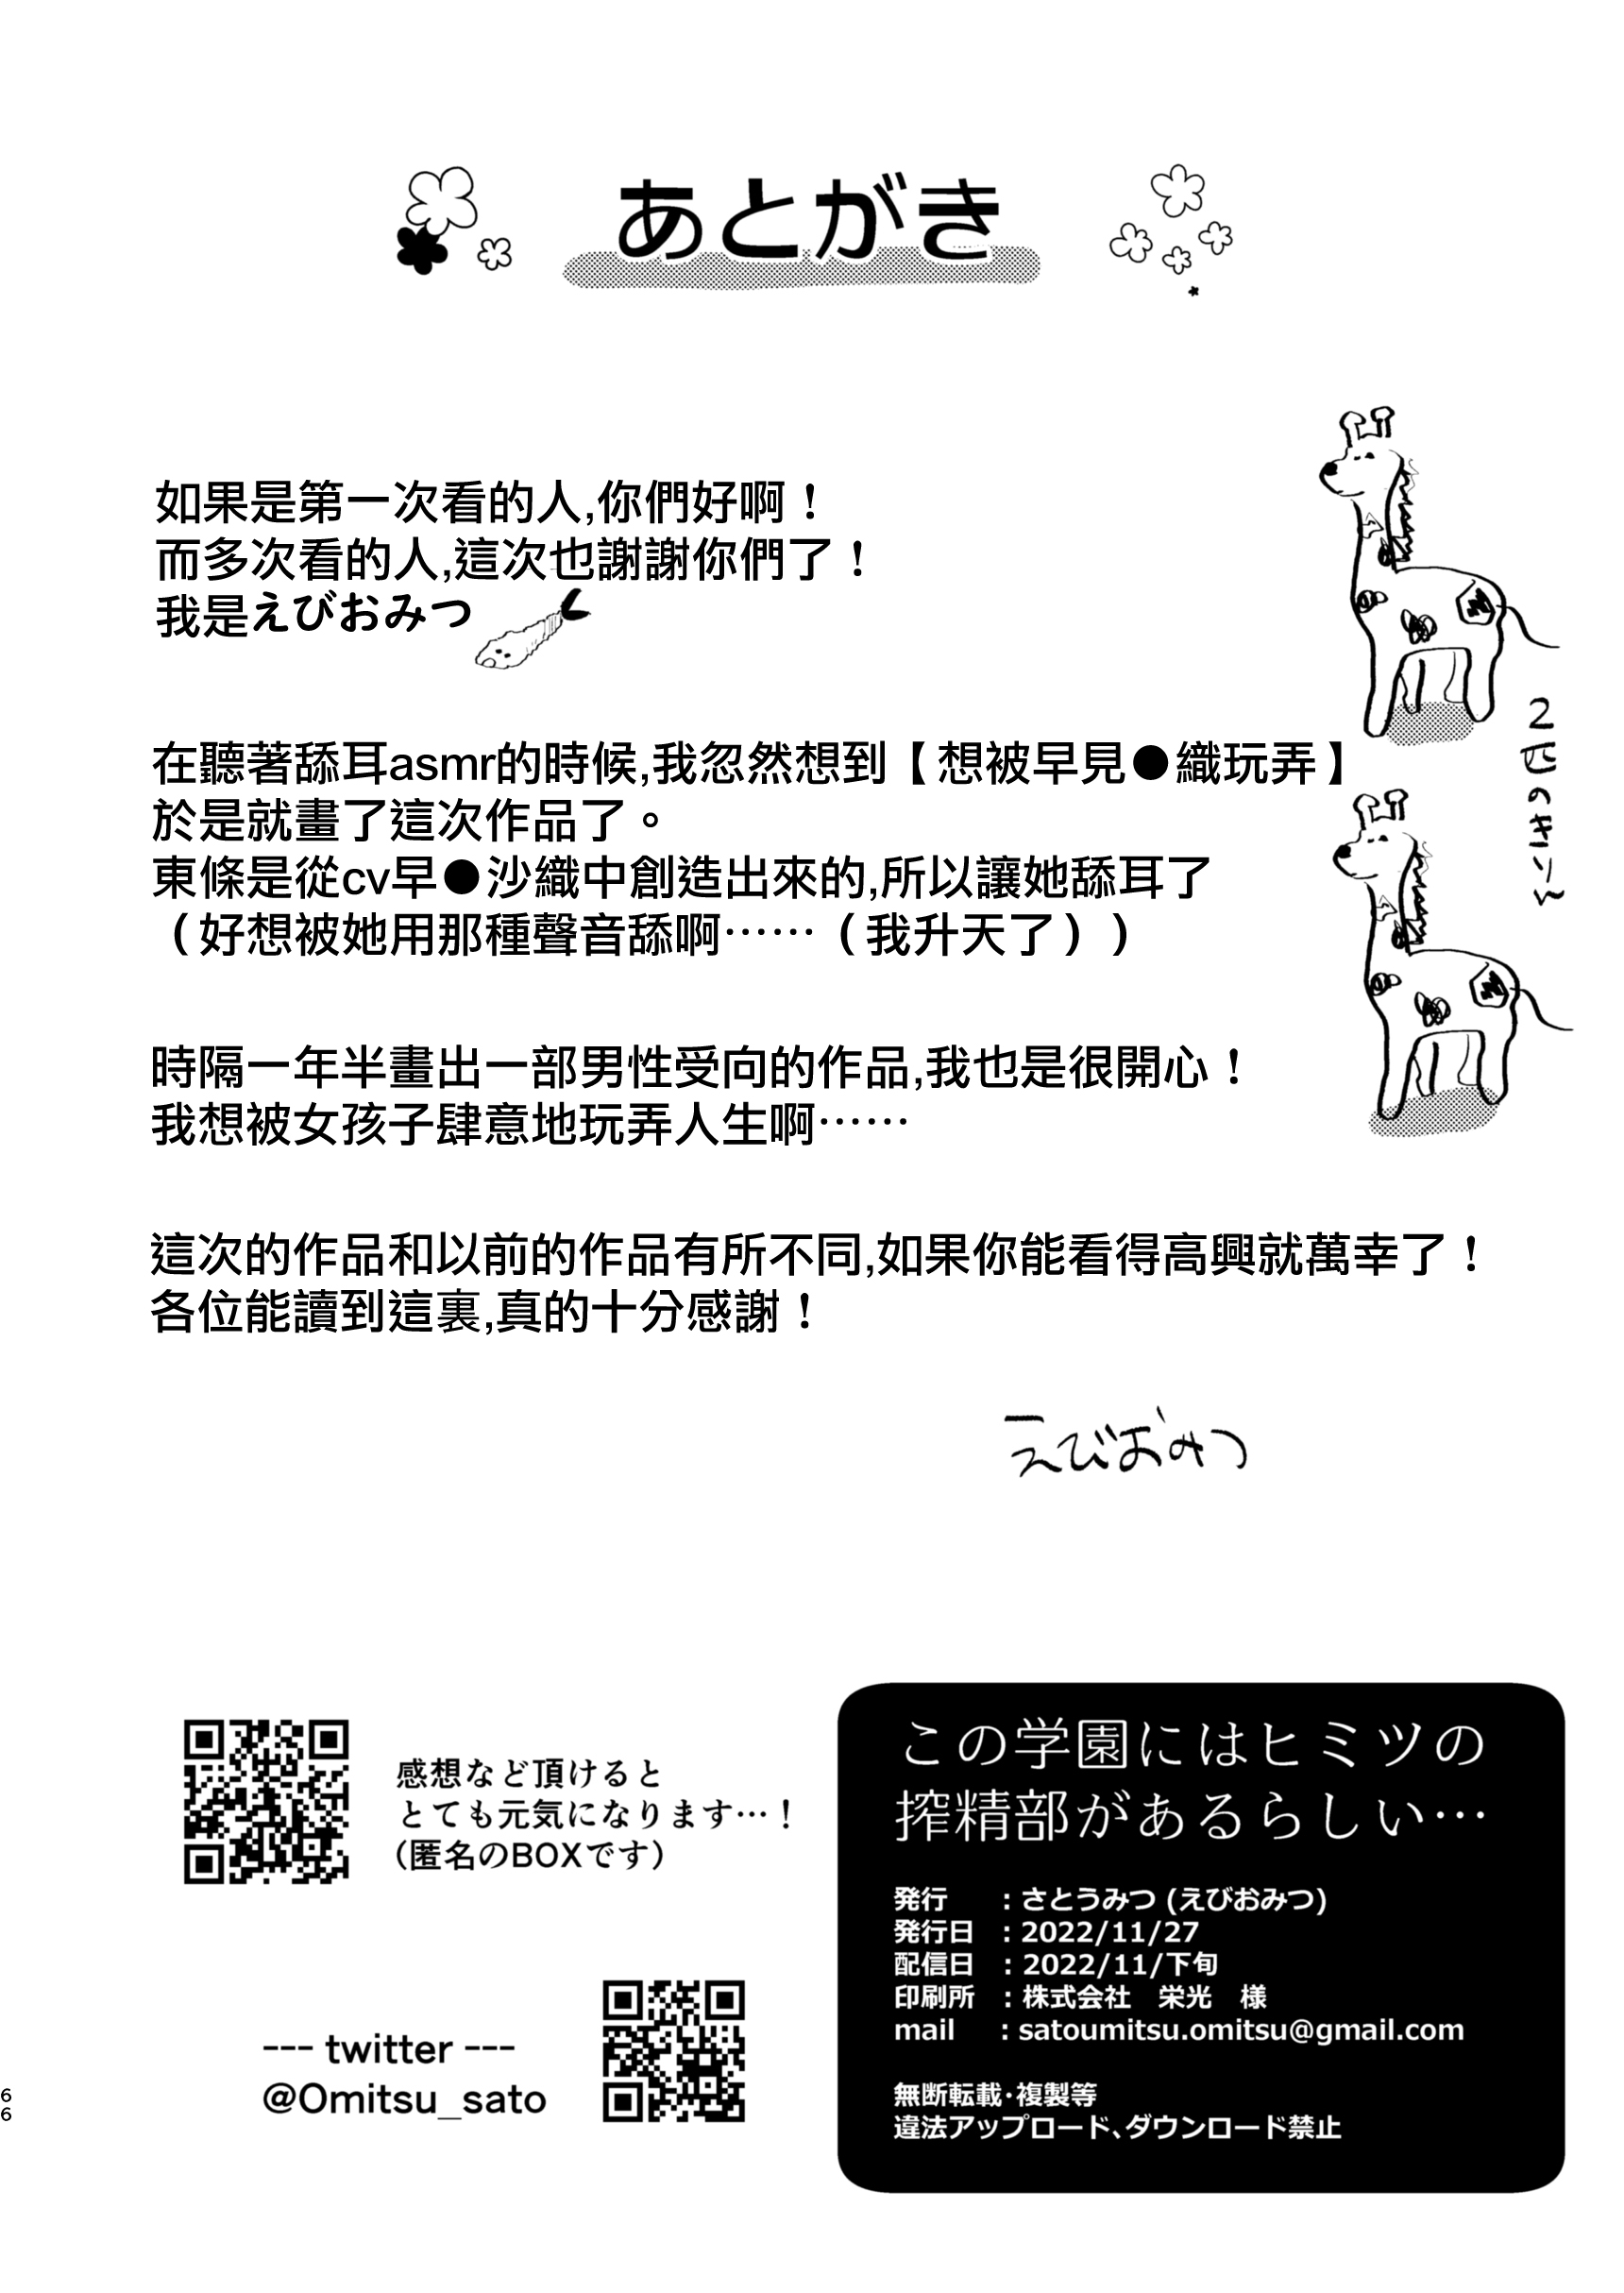 あとがき
如果是第一次看的人,你們好啊！
而多次看的人,這次也謝謝你們了！
我是えびおみつ
在聽著舔耳asmr的時候,我忽然想到【想被早見●織玩弄】
於是就畫了這次作品了。
東條是從cv早●沙織中創造出來的,所以讓她舔耳了
（好想被她用那種聲音舔啊⋯⋯（我升天了））
2匹のきりん
時隔一年半畫出一部男性受向的作品,我也是很開心！
我想被女孩子肆意地玩弄人生啊⋯⋯
這次的作品和以前的作品有所不同,如果你能看得高興就萬幸了！
各位能讀到這裏,真的十分感謝！
えびおみつ
感想など頂けると
とても元気になります…！
（匿名のBOXです）
--- twitter ---
@Omitsu_sato
この学園にはヒミツの
搾精部があるらしい…
発行　：さとうみつ (えびおみつ)
発行日　：2022/11/27
配信日　：2022/11/下旬
印刷所　：株式会社　栄光　様
mail　：satoumitsu.omitsu@gmail.com
無断転載・複製等
違法アップロード、ダウンロード禁止
66